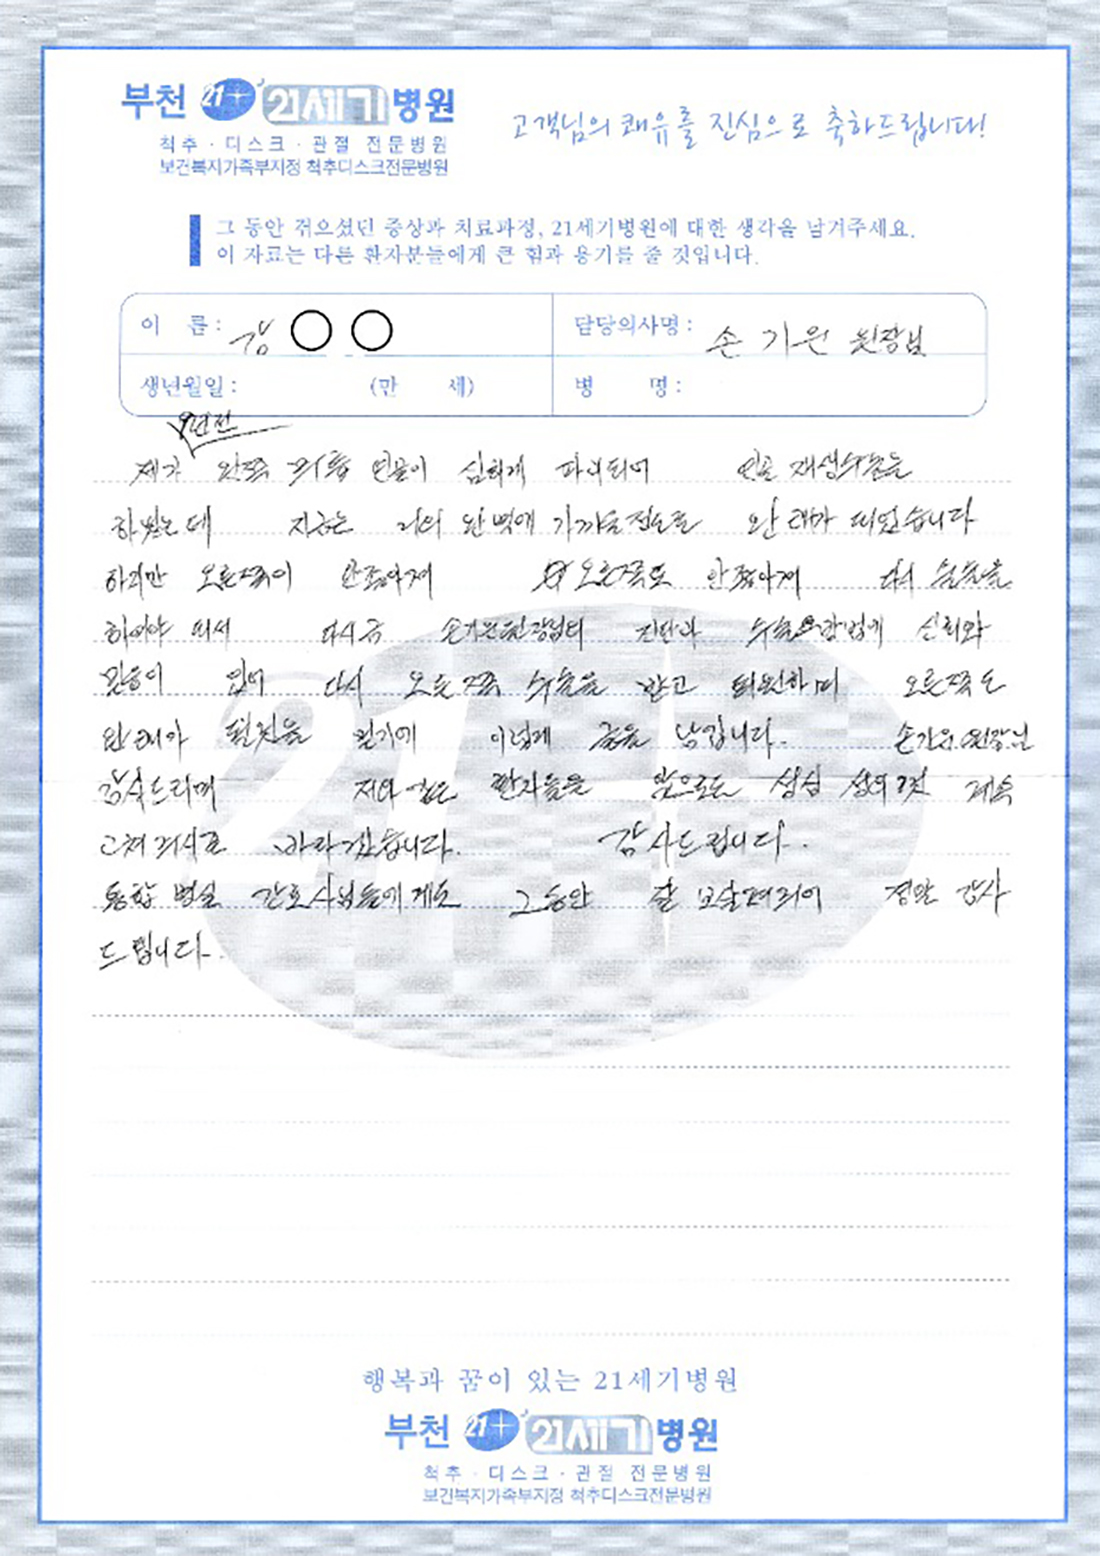 부천 21+ 21세기병원
척추 · 디스크 · 관절 전문병원
보건복지가족부지정 척추디스크전문병원
고객님의 쾌유를 진심으로 축하드립니다!
그 동안 겪으셨던 증상과 치료과정, 21세기병원에 대한 생각을 남겨주세요.
이 자료는 다른 환자분들에게 큰 힘과 용기를 줄 것입니다.
이 름 : 강 ○ ○
담당의사명 : 손기원 원장님
생년월일 : (만 세)
병 명 :
년전
제가 왼쪽 무릎 연골이 심하게 파괴되어 연골 재생수술을
하였는데 지금은 거의 완벽에 가까울정도로 완쾌가 되었습니다
하지만 오른쪽이 안좋아져 오른쪽도 안좋아져 다시 수술을
하여야 돼서 다시금 손기원원장님의 진단과 수술방법에 신뢰와
믿음이 있어 다시 오른쪽 수술을 받고 퇴원하며 오른쪽도
완쾌가 될것을 믿기에 이렇게 글을 남깁니다. 손기원원장님
감사드리며 저와 같은 환자들을 앞으로도 성심 성의껏 계속
고쳐주시길 바라겠습니다. 감사드립니다.
통합 병실 간호사님들에게도 그동안 잘 보살펴주어 정말 감사
드립니다.
21+
행복과 꿈이 있는 21세기병원
부천 21+ 21세기병원
척추 · 디스크 · 관절 전문병원
보건복지가족부지정 척추디스크전문병원